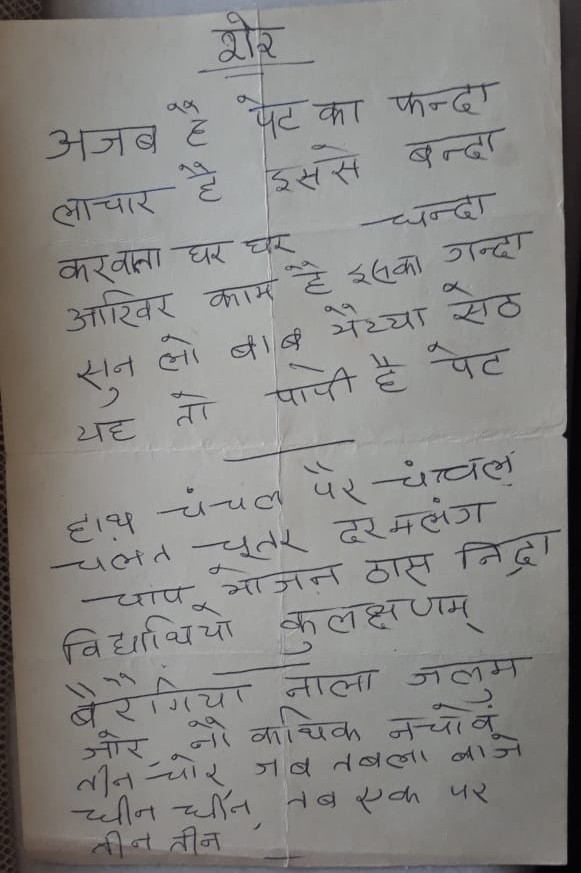 शेर
अजब है पेट का फन्दा
लाचार है इससे बन्दा
करवाता घर घर चन्दा
आखिर काम है इसका गन्दा
सुन लो बाबू भैय्या सेठ
यह तो पापी है पेट
हाथ चंचल पैर चंचल
चलत चूतर दरमलंग
चांप भोजन ठास निद्रा
विद्यार्थियो कुलक्षणम्
बैरगिया नाला जलुम
जोर, नौ कथिक नचावें
तीन चोर, जब तबला बाजे
धीन धीन, तब एक पर
तीन तीन